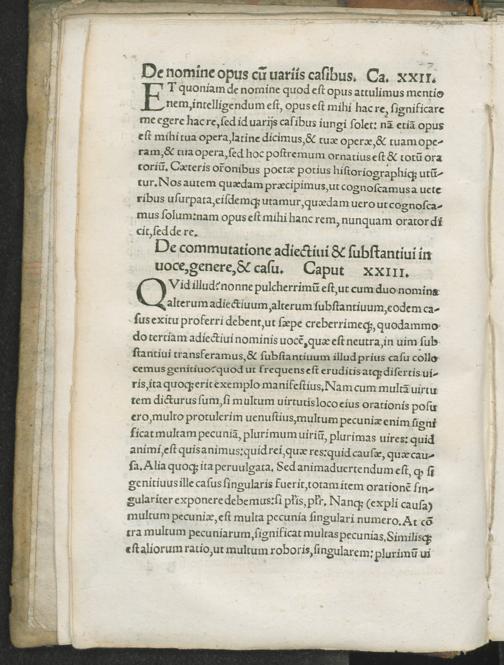 De nomine opus cū uariis casibus. Ca. XXII.
ET quoniam de nomine quod est opus attulimus mentio
nem, intelligendum est, opus est mihi hac re, significare
me egere hac re, sed id uariis casibus iungi solet: nā etiā opus
est mihi tua opera, latine dicimus, & tuæ operæ, & tuam ope-
ram, & tua opera, sed hoc postremum ornatius est & totū ora
toriū. Cæteris orōnibus poetæ potius historiographiq; utū-
tur. Nos autem quædam præcipimus, ut cognoscamus a uete
ribus usurpata, eisdemq; utamur, quædam uero ut cognosca-
mus solum: nam opus est mihi hanc rem, nunquam orator di
cit, sed de re.
De commutatione adiectiui & substantiui in
uoce, genere, & casu. Caput XXIII.
QVid illud? nonne pulcherrimū est, ut cum duo nomina
alterum adiectiuum, alterum substantiuum, eodem ca-
sus exitu proferri debent, ut sæpe creberrimeq;, quodammo
do tertiam adiectiui nominis uocē, quæ est neutra, in uim sub
stantiui transferamus, & substantiuum illud prius casu collo
cemus genitiuo? quod ut frequens est eruditis atq; disertis ui-
ris, ita quoq; erit exemplo manifestius. Nam cum multā uirtu
tem dicturus sum, si multum uirtutis loco eius orationis posu
ero, multo protulerim uenustius, multum pecuniæ enim signi
ficat multam pecuniā, plurimum uiriū, plurimas uires: quid
animi, est quis animus: quid rei, quæ res: quid causæ, quæ cau-
sa. Alia quoq; ita peruulgata. Sed animaduertendum est, q̨ si
genitiuus ille casus singularis fuerit, totam item orationē sin-
gulariter exponere debemus: si pl̄is, pl̄r. Nanq; (expli causa)
multum pecuniæ, est multa pecunia singulari numero. At cō
tra multum pecuniarum, significat multas pecunias. Similisq;
est aliorum ratio, ut multum roboris, singularem: plurimū ui